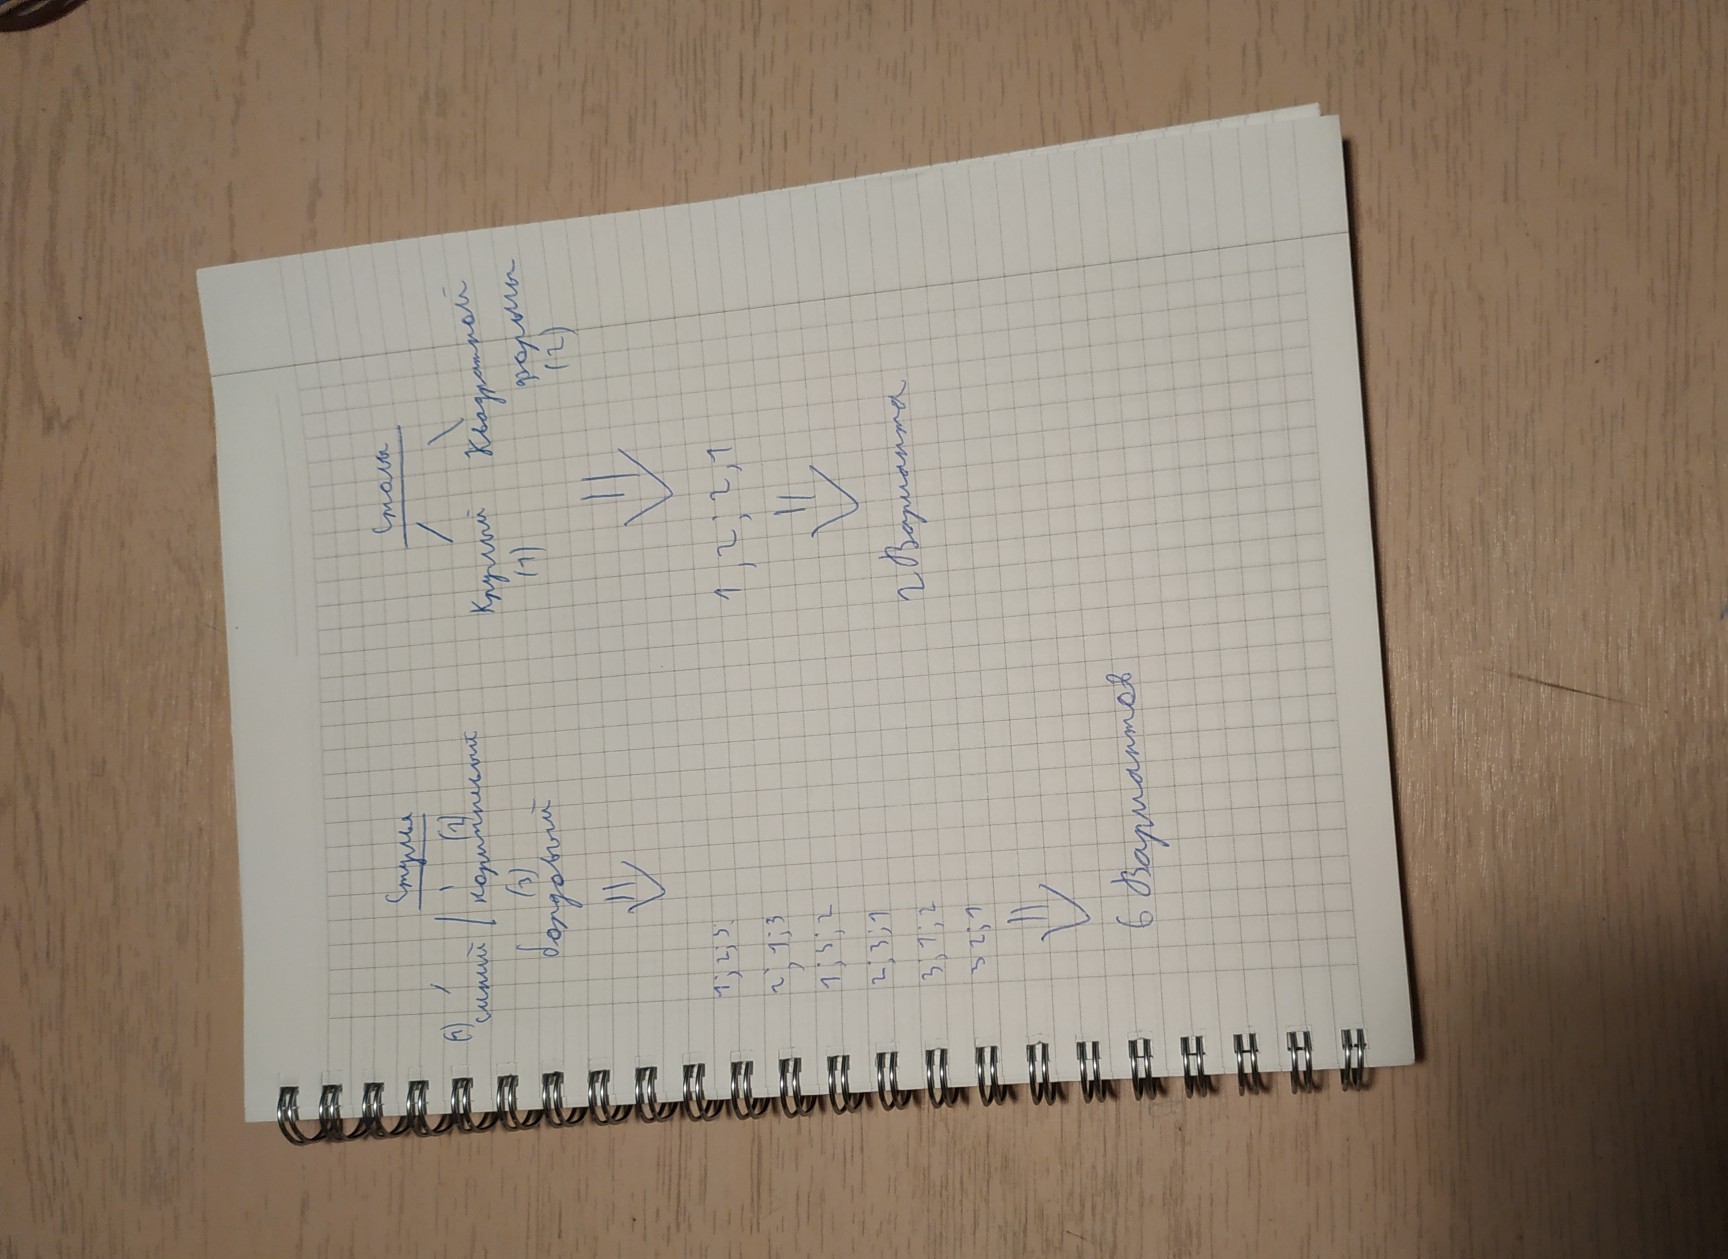 Стулья
(1) синий коричневый (2)
(3)
бордовый
1; 2; 3;
2; 1; 3
1; 3; 2
2; 3; 1
3; 1; 2
3 2; 1
6 Вариантов
Столы
Круглый Квадратной
(1) формы
(2)
1, 2; 2, 1
2 Варианта